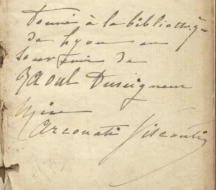 Donné à la bibliothèque
de Lyon en
souvenir de
Raoul Duseigneur
Mise
Arconati Visconti